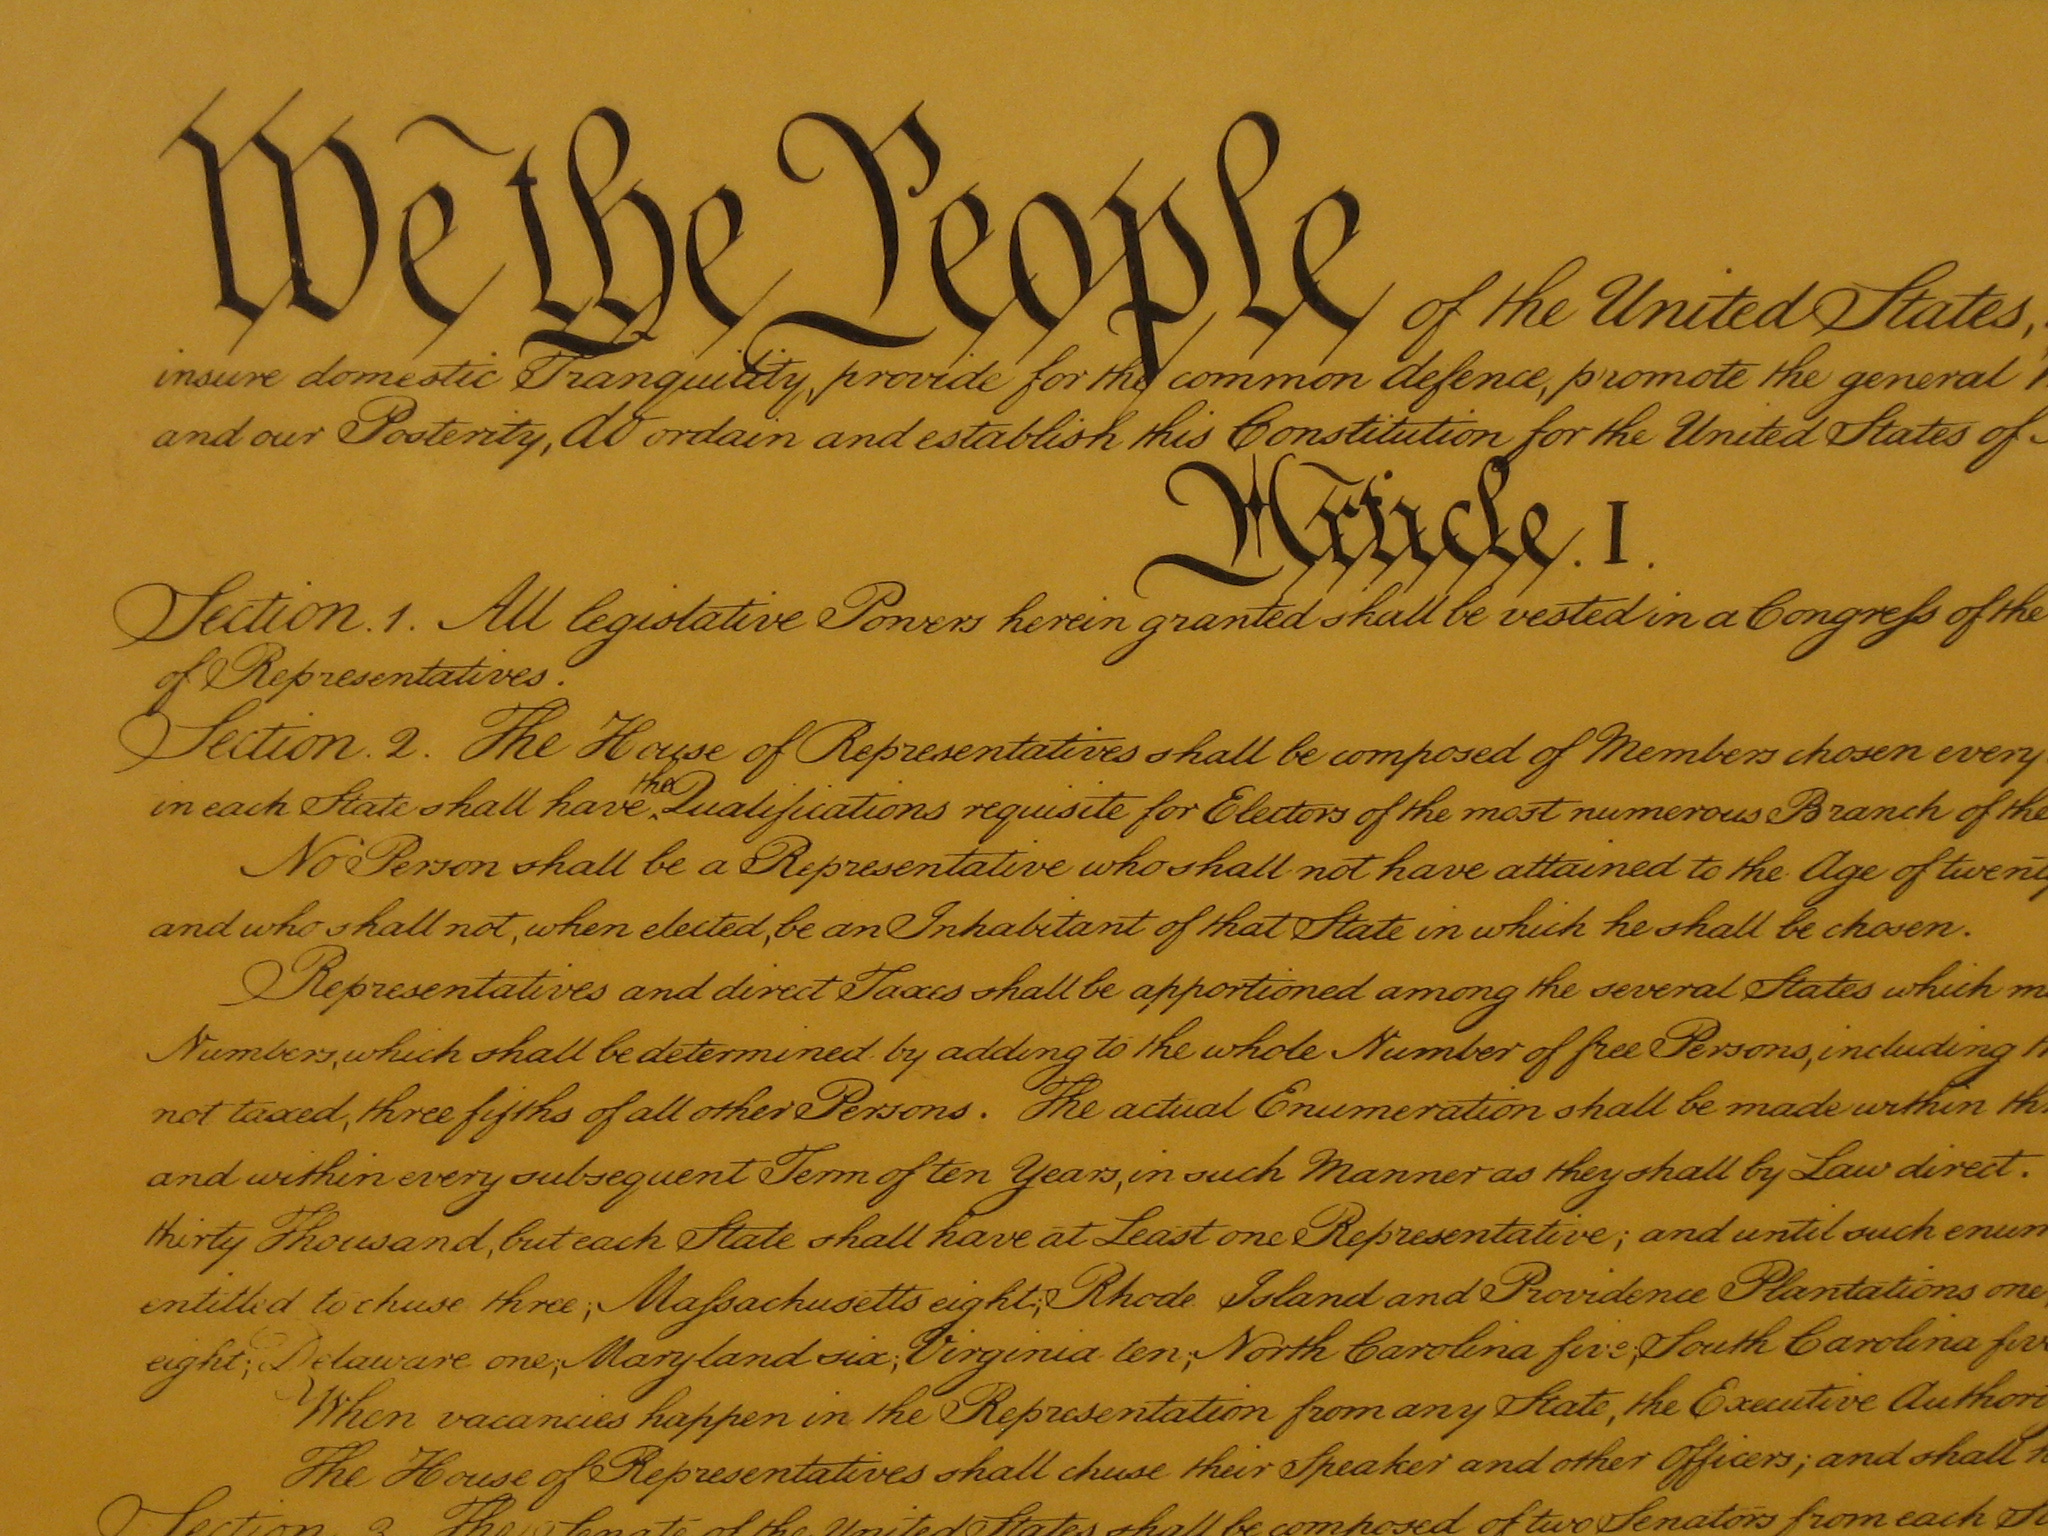 We the People of the United States,
insure domestic Tranquility, provide for the common defence, promote the general
and our Posterity, do ordain and establish this Constitution for the United States of
Article. I.
Section. 1. All legislative Powers herein granted shall be vested in a Congreſs of the
of Representatives.
Section. 2. The House of Representatives shall be composed of Members chosen every
the
in each State shall have Qualifications requisite for Electors of the most numerous Branch of the
No Person shall be a Representative who shall not have attained to the Age of twenty
and who shall not, when elected, be an Inhabitant of that State in which he shall be chosen.
Representatives and direct Taxes shall be apportioned among the several States which
Numbers, which shall be determined by adding to the whole Number of free Persons, including
not taxed, three fifths of all other Persons. The actual Enumeration shall be made within
and within every subsequent Term of ten Years, in such Manner as they shall by Law direct.
thirty Thousand, but each State shall have at Least one Representative; and until such enum
entitled to chuse three, Maſsachusetts eight, Rhode Island and Providence Plantations one
eight, Delaware one, Maryland six, Virginia ten, North Carolina five, South Carolina five
When vacancies happen in the Representation from any State, the Executive Authori
The House of Representatives shall chuse their Speaker and other Officers; and shall
Section. 3. The Senate of the United States shall be composed of two Senators from each